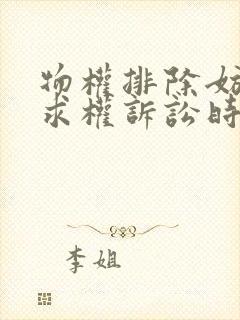 物權排除妨
求權訴訟時
李姐